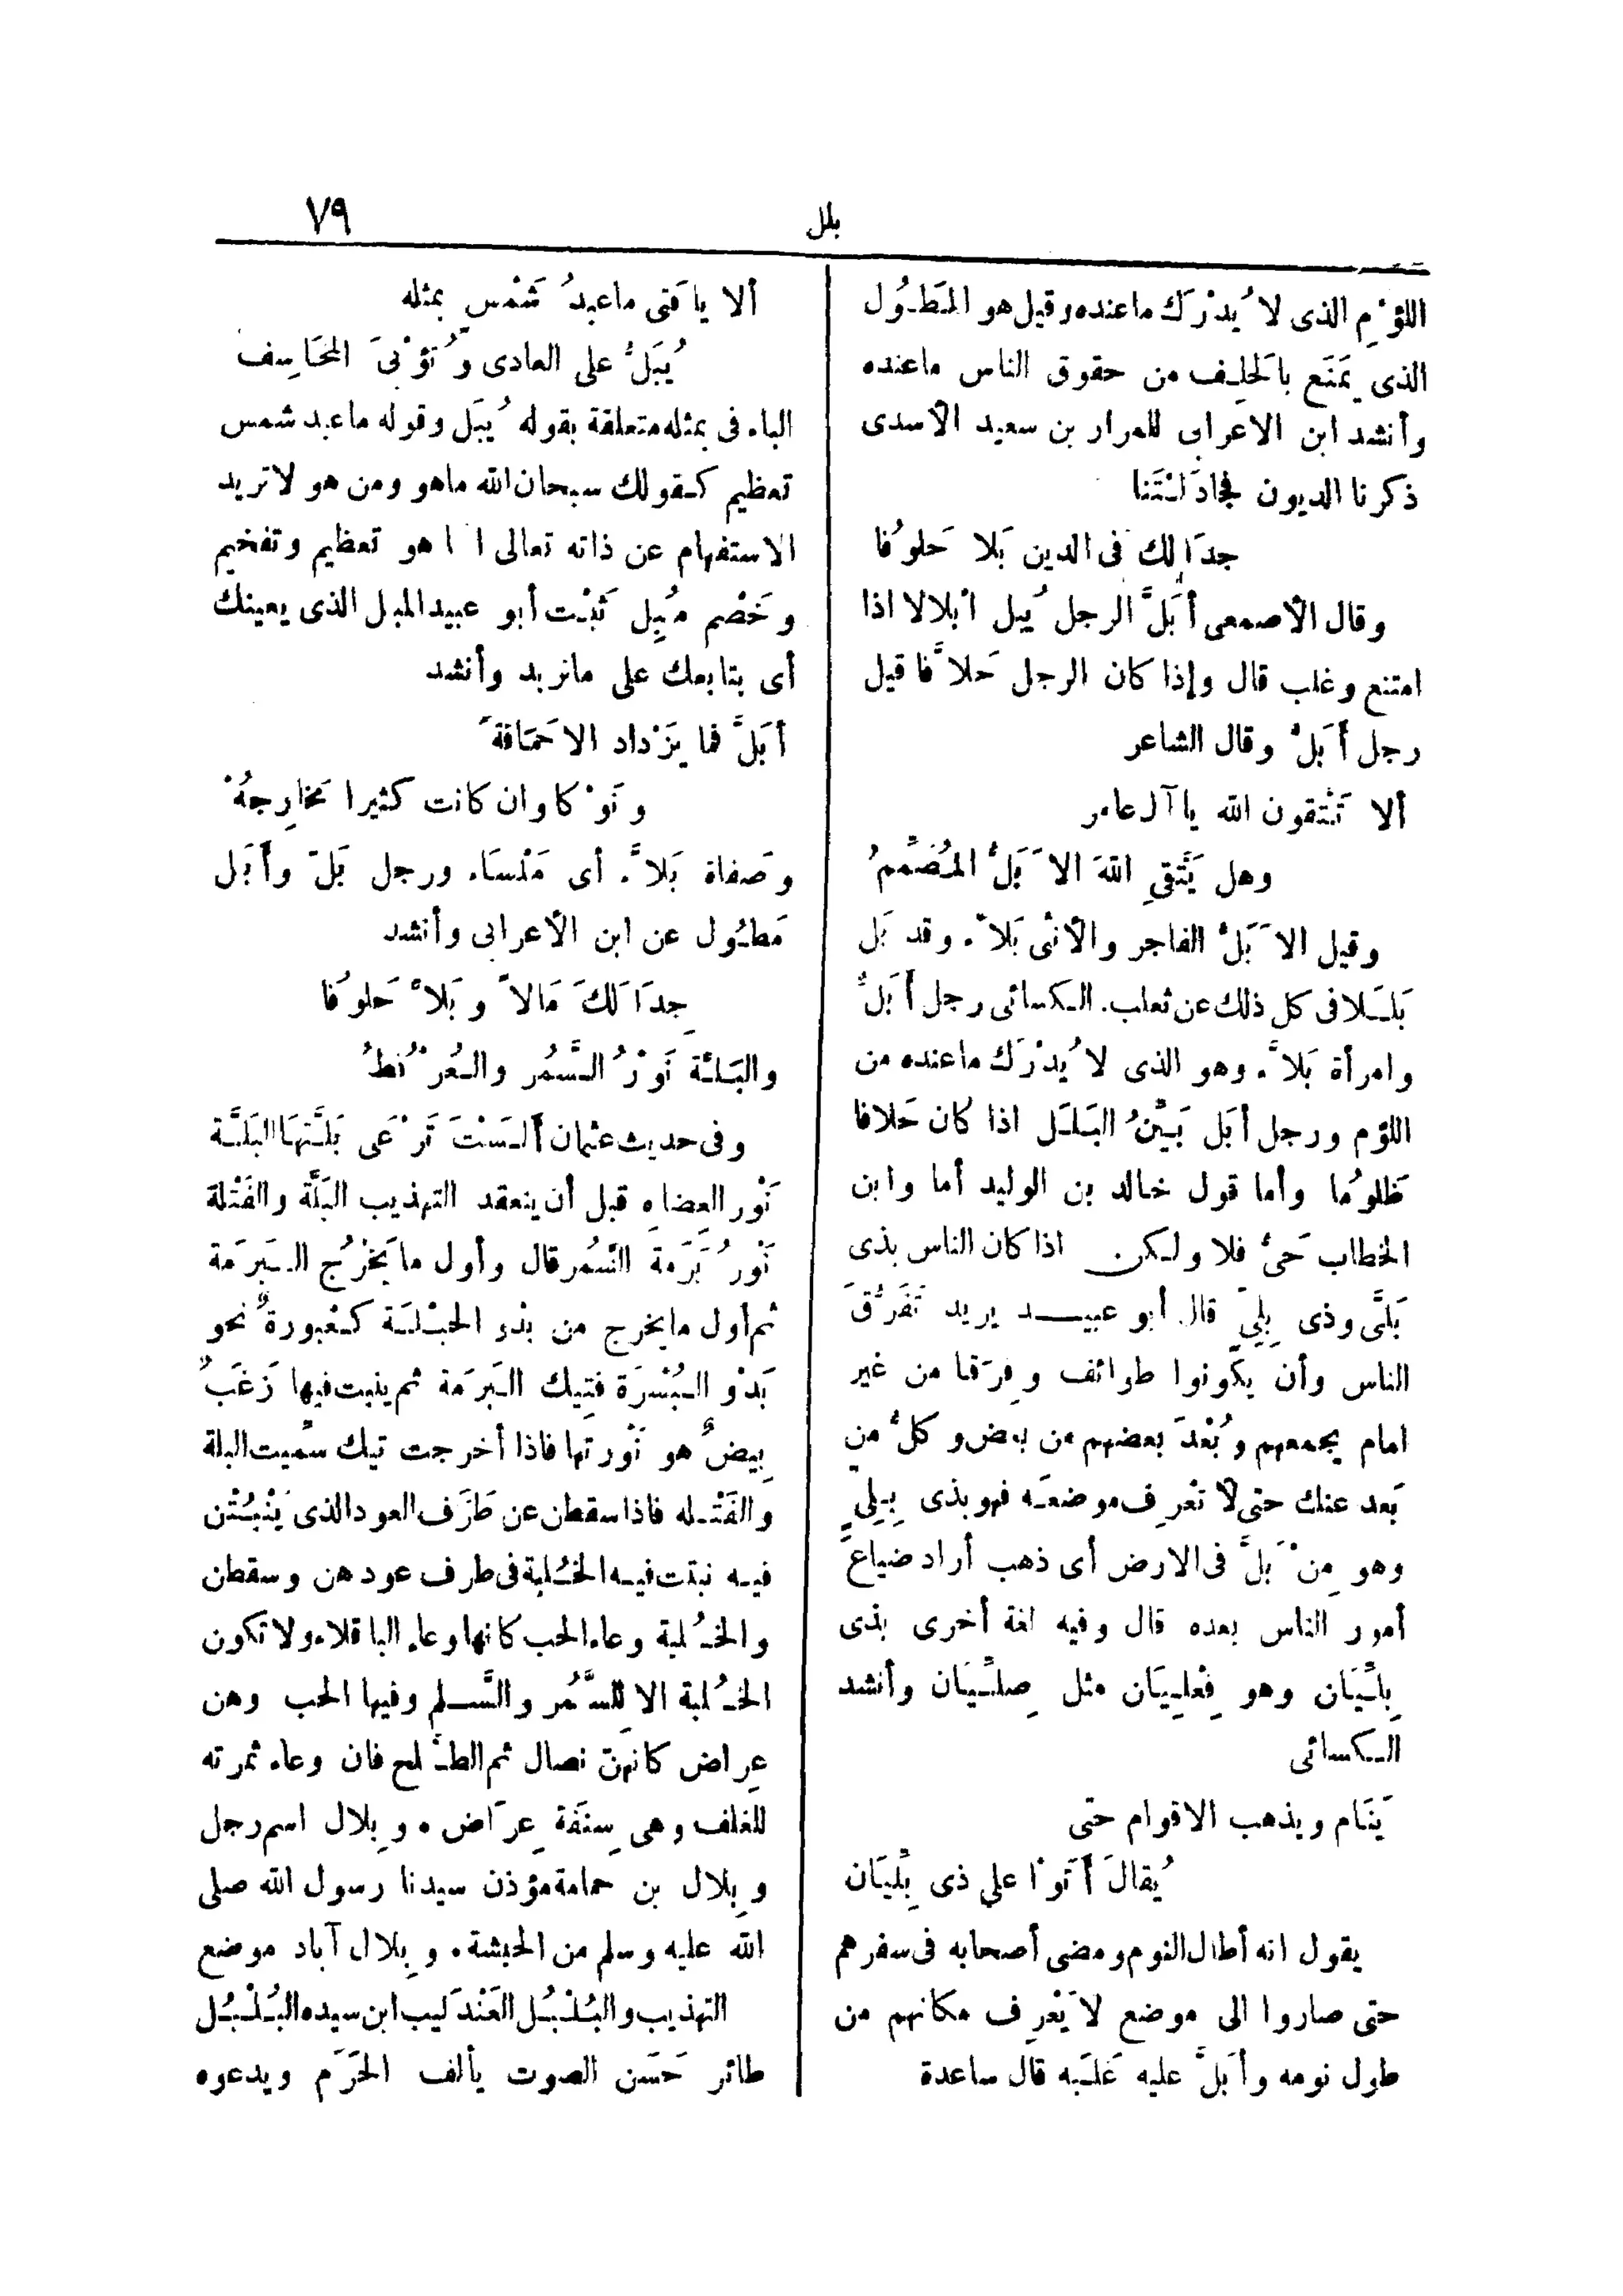 بلل
٧٩
اللؤْم الذى لا يُدْرَك ماعنده وقيل هو المَطُول
الذى يَمْنَع بالحَلِف من حقوق الناس ماعنده
وأنشد ابن الاعرابى للمرار بن سعيد الأسدى
ذكرنا الديون فجادَلْتَنا
جدَالك فى الدين بَلا حَلُوفا
وقال الأصمعى أَبَلَّ الرجل يُبِل ابْلالا اذا
امتنع وغلب قال وإذا كان الرجل حَلاَّفا قيل
رجل أَبَلّ وقال الشاعر
ألا تَتَّقون الله يا آل عامر
وهل يَتَّقِى اللهَ الاَبَلُّ المُصَمِّمُ
وقيل الاَبَلُّ الفاجر والأنثى بَلاَّء وقد بَل
بَلَلا فى كل ذلك عن ثعلب. الكسائى رجل أَبَلُّ
وامرأة بَلاَّء وهو الذى لا يُدْرَك ماعنده من
اللؤم ورجل أَبَل بَيِّنُ البَلَل اذا كان حَلافا
ظَلُومًا وأما قول خالد بن الوليد أما وابن
الخطاب حَىٌّ فلا ولكن اذا كان الناس بذى
بَلَّى وذى بِلِىّ قال أبو عبيد يريد تَفَرُّقَ
الناس وأن يكونوا طوائف وفِرَقا من غير
امام يجمعهم وبُعْدَ بعضهم من بعض وكلُّ من
بَعد عنك حتى لا تَعْرِف موضعَه فهو بذى بِلِىٍّ
وهو مِنْ بَلَّ فى الارض أى ذهب أراد ضياعَ
أمور الناس بعده قال وفيه لغة أخرى بذى
بِلِّيَان وهو فِعْلِيَان مثل صِلِّيَان وأنشد
الكسائى
يَنَام ويذهب الاقوام حتى
يُقالَ أَتَوْا على ذى بِلِّيَان
يقول انه أطال النوم ومضى أصحابه فى سفرهم
حتى صاروا الى موضع لا يَعْرِف مكانهم من
طول نومه وأَبَلَّ عليه غَلَبه قال ساعدة
ألا يا فَتى ماعبدُ شَمْس بمثله
يُبَلُّ على العادى وتُؤْبَى المَخَاسِف
الباء فى بمثله متعلقة بقوله يُبَل وقوله ماعبد شمس
تعظيم كقولك سبحان الله ماهو ومن هو لا تريد
الاستفهام عن ذاته تعالى هو تعظيم وتفخيم
وخَصْم مُبِل ثَبْت أبو عبيد المبل الذى يعينك
أى يتابعك على ماتريد وأنشد
أَبَلَّ فما يَزْداد الا حَمَاقةً
ونَوْكا وان كانت كثيرا مَخارِجُهْ
وصَفاة بَلاَّء أى مَلْسَاء ورجل بَلّ وأَبَل
مَطُول عن ابن الأعرابى وأنشد
جِدَالَكَ مَالاً وبَلاَّ حَلُوفا
والبَلَّة نَوْرُ السَّمُر والعُرْفُطُ
وفى حديث عثمان أَلَسْتَ تَرْعَى بَلَّتَهَا البَلَّة
نَوْر العِضاه قبل أن ينعقد التهذيب البَلَّة والفَتْلة
نَوْرُ بَرَمة السَّمُر قال وأول مايَخْرُج البَرَمَة
ثم أول مايخرج من بَدْو الحَبْلَة كَعْبورةٌ نحو
بَدْو البُسْرَة فتِيك البَرَمَة ثم ينبت فيها زَغَبٌ
بِيضٌ هو نَوْرتها فاذا أخرجت تيك سمّيت البلة
والفَتْله فاذا سقطن عن طَرَف العود الذى يَنْبُتْن
فيه نبتت فيه الخُلبة فى طرف عودهن وسقطن
والخُلبة وعاء الحب كانها وعاء الباقلاء ولا تكون
الخُلبة الا للسَّمُر والسَّلم وفيها الحب وهن
عِراض كانهن نصال ثم الطلح فان وعاء ثمرته
للغلف وهى سِنَفة عِرَاض • وبِلال اسم رجل
وبِلال بن حمامة مؤذن سيدنا رسول الله صلى
الله عليه وسلم من الحبشة • وبِلال آباد موضع
التهذيب والبُلْبُل العَنْدَليب ابن سيده البُلْبُل
طائر حَسَن الصوت يألف الحَرَم ويدعوه